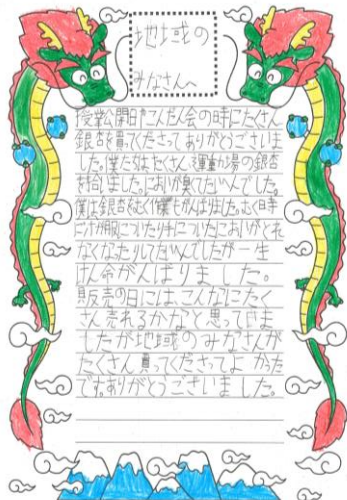 地域の
みなさんへ
授業公開日やこんだん会の時にたくさん
銀杏を買ってくださってありがとうございま
した。僕たちはたくさん運動場の銀杏
を拾いました。においが臭くてたいへんでした。
僕は銀杏をむく作業もがんばりました。むく時
に汁が服についたり手についたにおいがとれ
なくなったりしてたいへんでしたが一生
けん命がんばりました。
販売の日には、こんなにたく
さん売れるかなっと思っていま
したが地域のみなさんが
たくさん買ってくださってよかった
です。ありがとうございました。